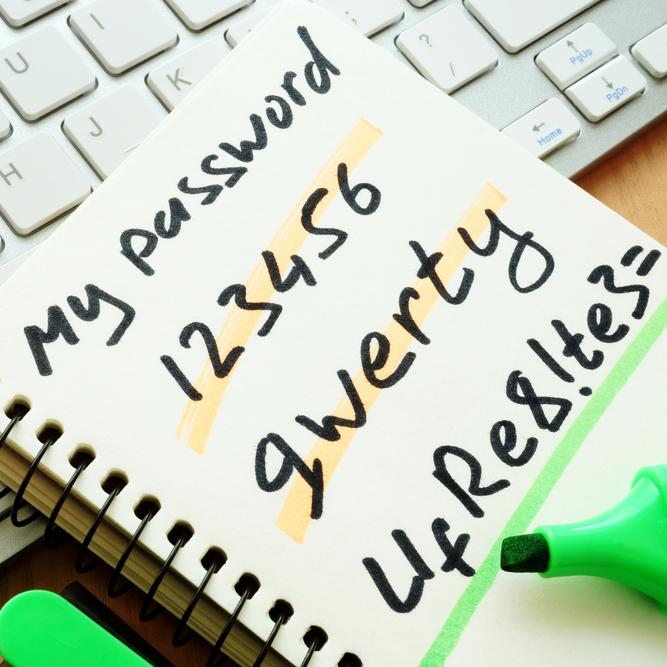 My password
123456
qwerty
UfRe8!te3=
U
I
?
/
J
K
H
PgUp
PgDn
Home